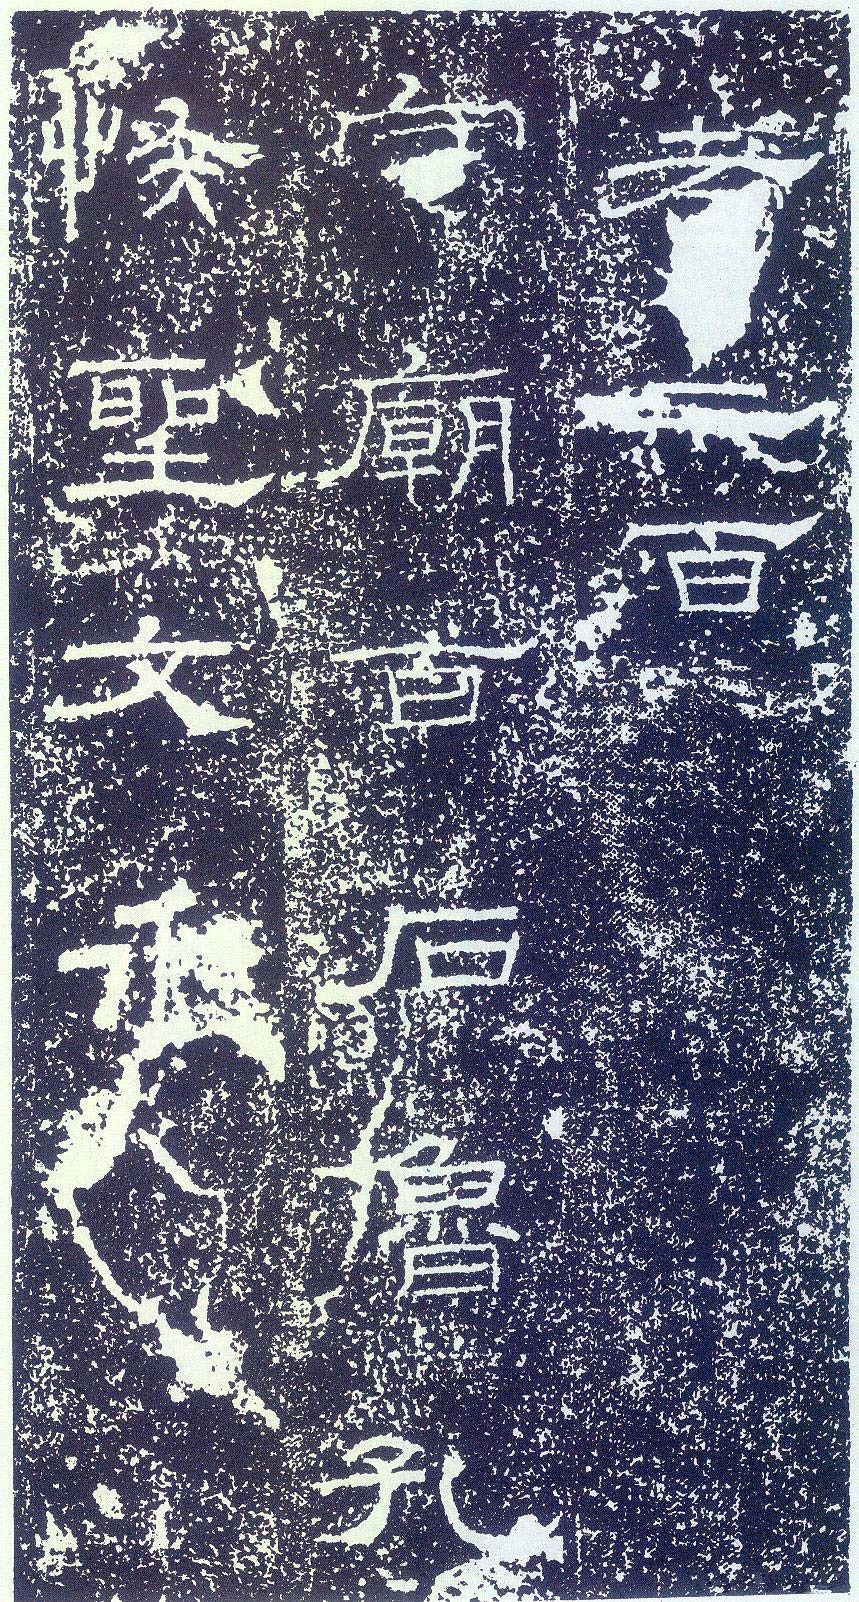 二百
守廟百石魯孔
恢聖文